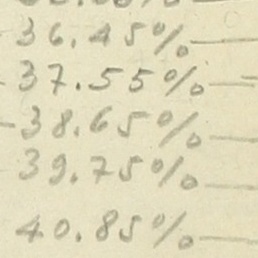 36.45%
37.55%
38.65%
39.75%
40.85%